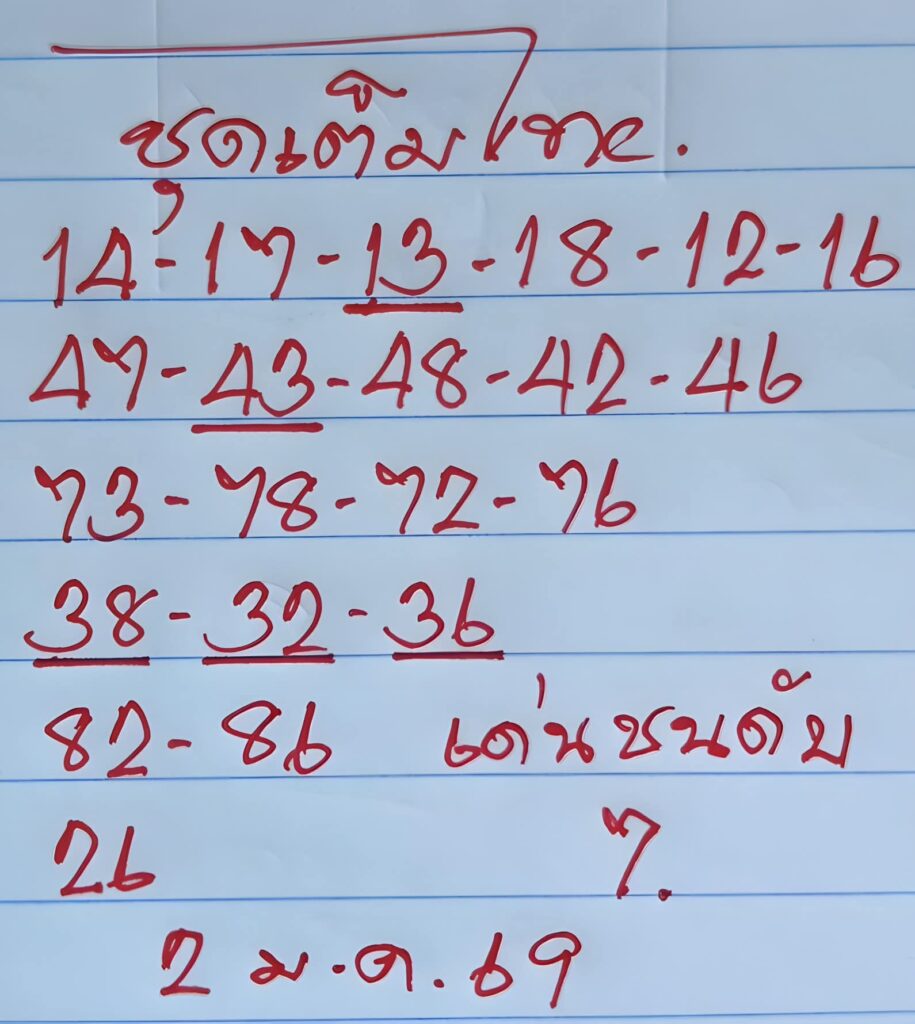 ชุดเต็มไทย.
14-17-13-18-12-16
47-43-48-42-46
73-78-72-76
38-32-36
82-86 เด่นชนดับ
26 7.
2 ม.ค.69